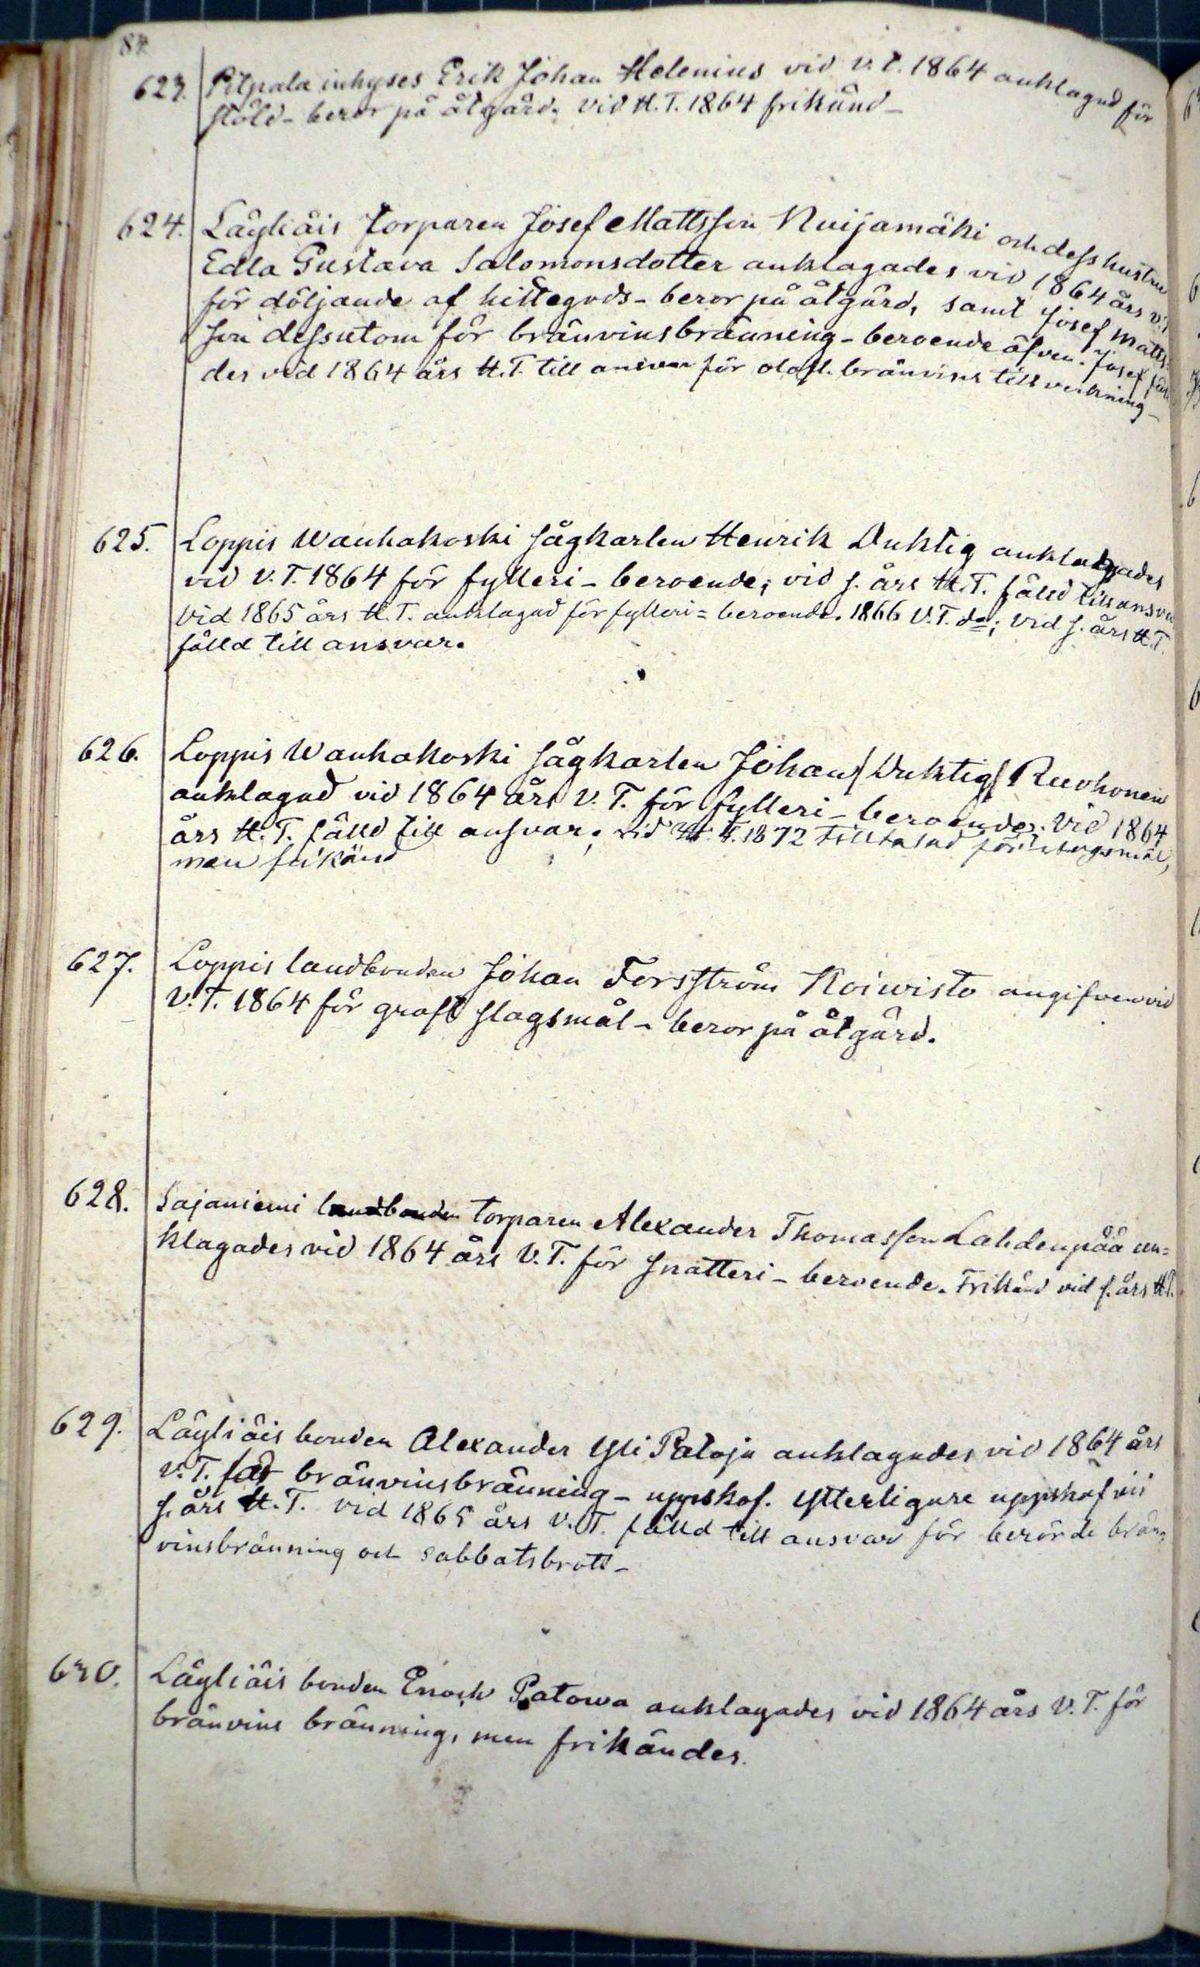 84.
623. Pilpala inhyses Erik Johan Helenius vid V.T. 1864 anklagad för
stöld - beror på åtgärd; vid H.T. 1864 frikänd -
624. Läyliäis torparen Josef Mattsson Nuijamäki och dess hustru
Edla Gustava Salomonsdotter anklagades vid 1864 års V.T.
för döljande af hittegods - beror på åtgärd, samt Josef Matts-
son dessutom för bränvinsbränning - beroende äfven. Josef fäl
des vid 1864 års H.T. till ansvar för olofl. bränvins tillverkning -
625. Loppis Wanhakoski sågkarlen Henrik Duktig anklagades
vid V.T. 1864 för fylleri - beroende; vid s. års H.T. fälld till ansvar
Vid 1865 års H.T. anklagad för fylleri = beroende. 1866 V.T. do; vid s. års H.T.
fälld till ansvar.
626. Loppis Wanhakoski sågkarlen Johan /Duktig/ Ruohonen
anklagad vid 1864 års V.T. för fylleri - beroende. Vid 1864
års H.T. fälld till ansvar; vid H.T. 1872 tilltalad för slagsmål,
men frikänd
627. Loppis landbonden Johan Forsström Koiwisto angifven vid
V.T. 1864 för groft slagsmål - beror på åtgärd.
628. Sajaniemi landbonden torparen Alexander Thomasson Lahdenpää an=
klagades vid 1864 års V.T. för snatteri - beroende. Frikänd vid s. års H.T.
629. Läyliäis bonden Alexander Yli Patoja anklagades vid 1864 års
V.T. för bränvinsbränning - uppskof. Ytterligare uppskof vid
s. års H.T. vid 1865 års V.T. fälld till ansvar för berörde brän=
vinsbränning och sabbatsbrott -
630. Läyliäis bonden Enoch Patowa anklagades vid 1864 års V.T. för
bränvins bränning, men frikändes.